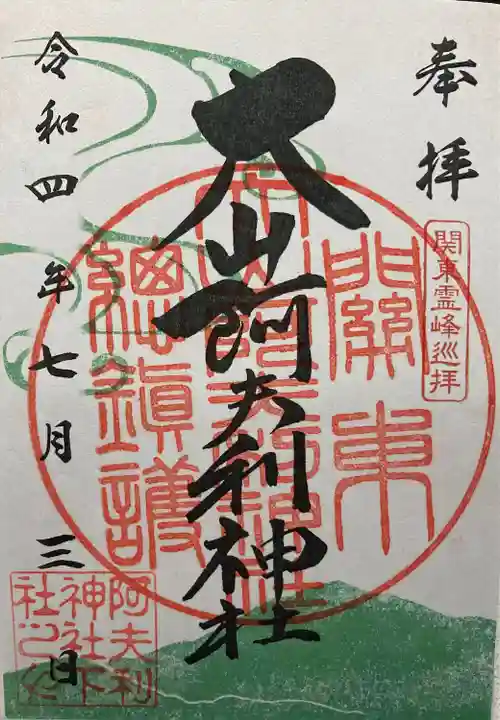 奉拝
関東霊峰巡拝
大山阿夫利神社
關東
大山阿夫利神社
總鎮護
令和四年七月三日
阿夫利
神社下
社之印